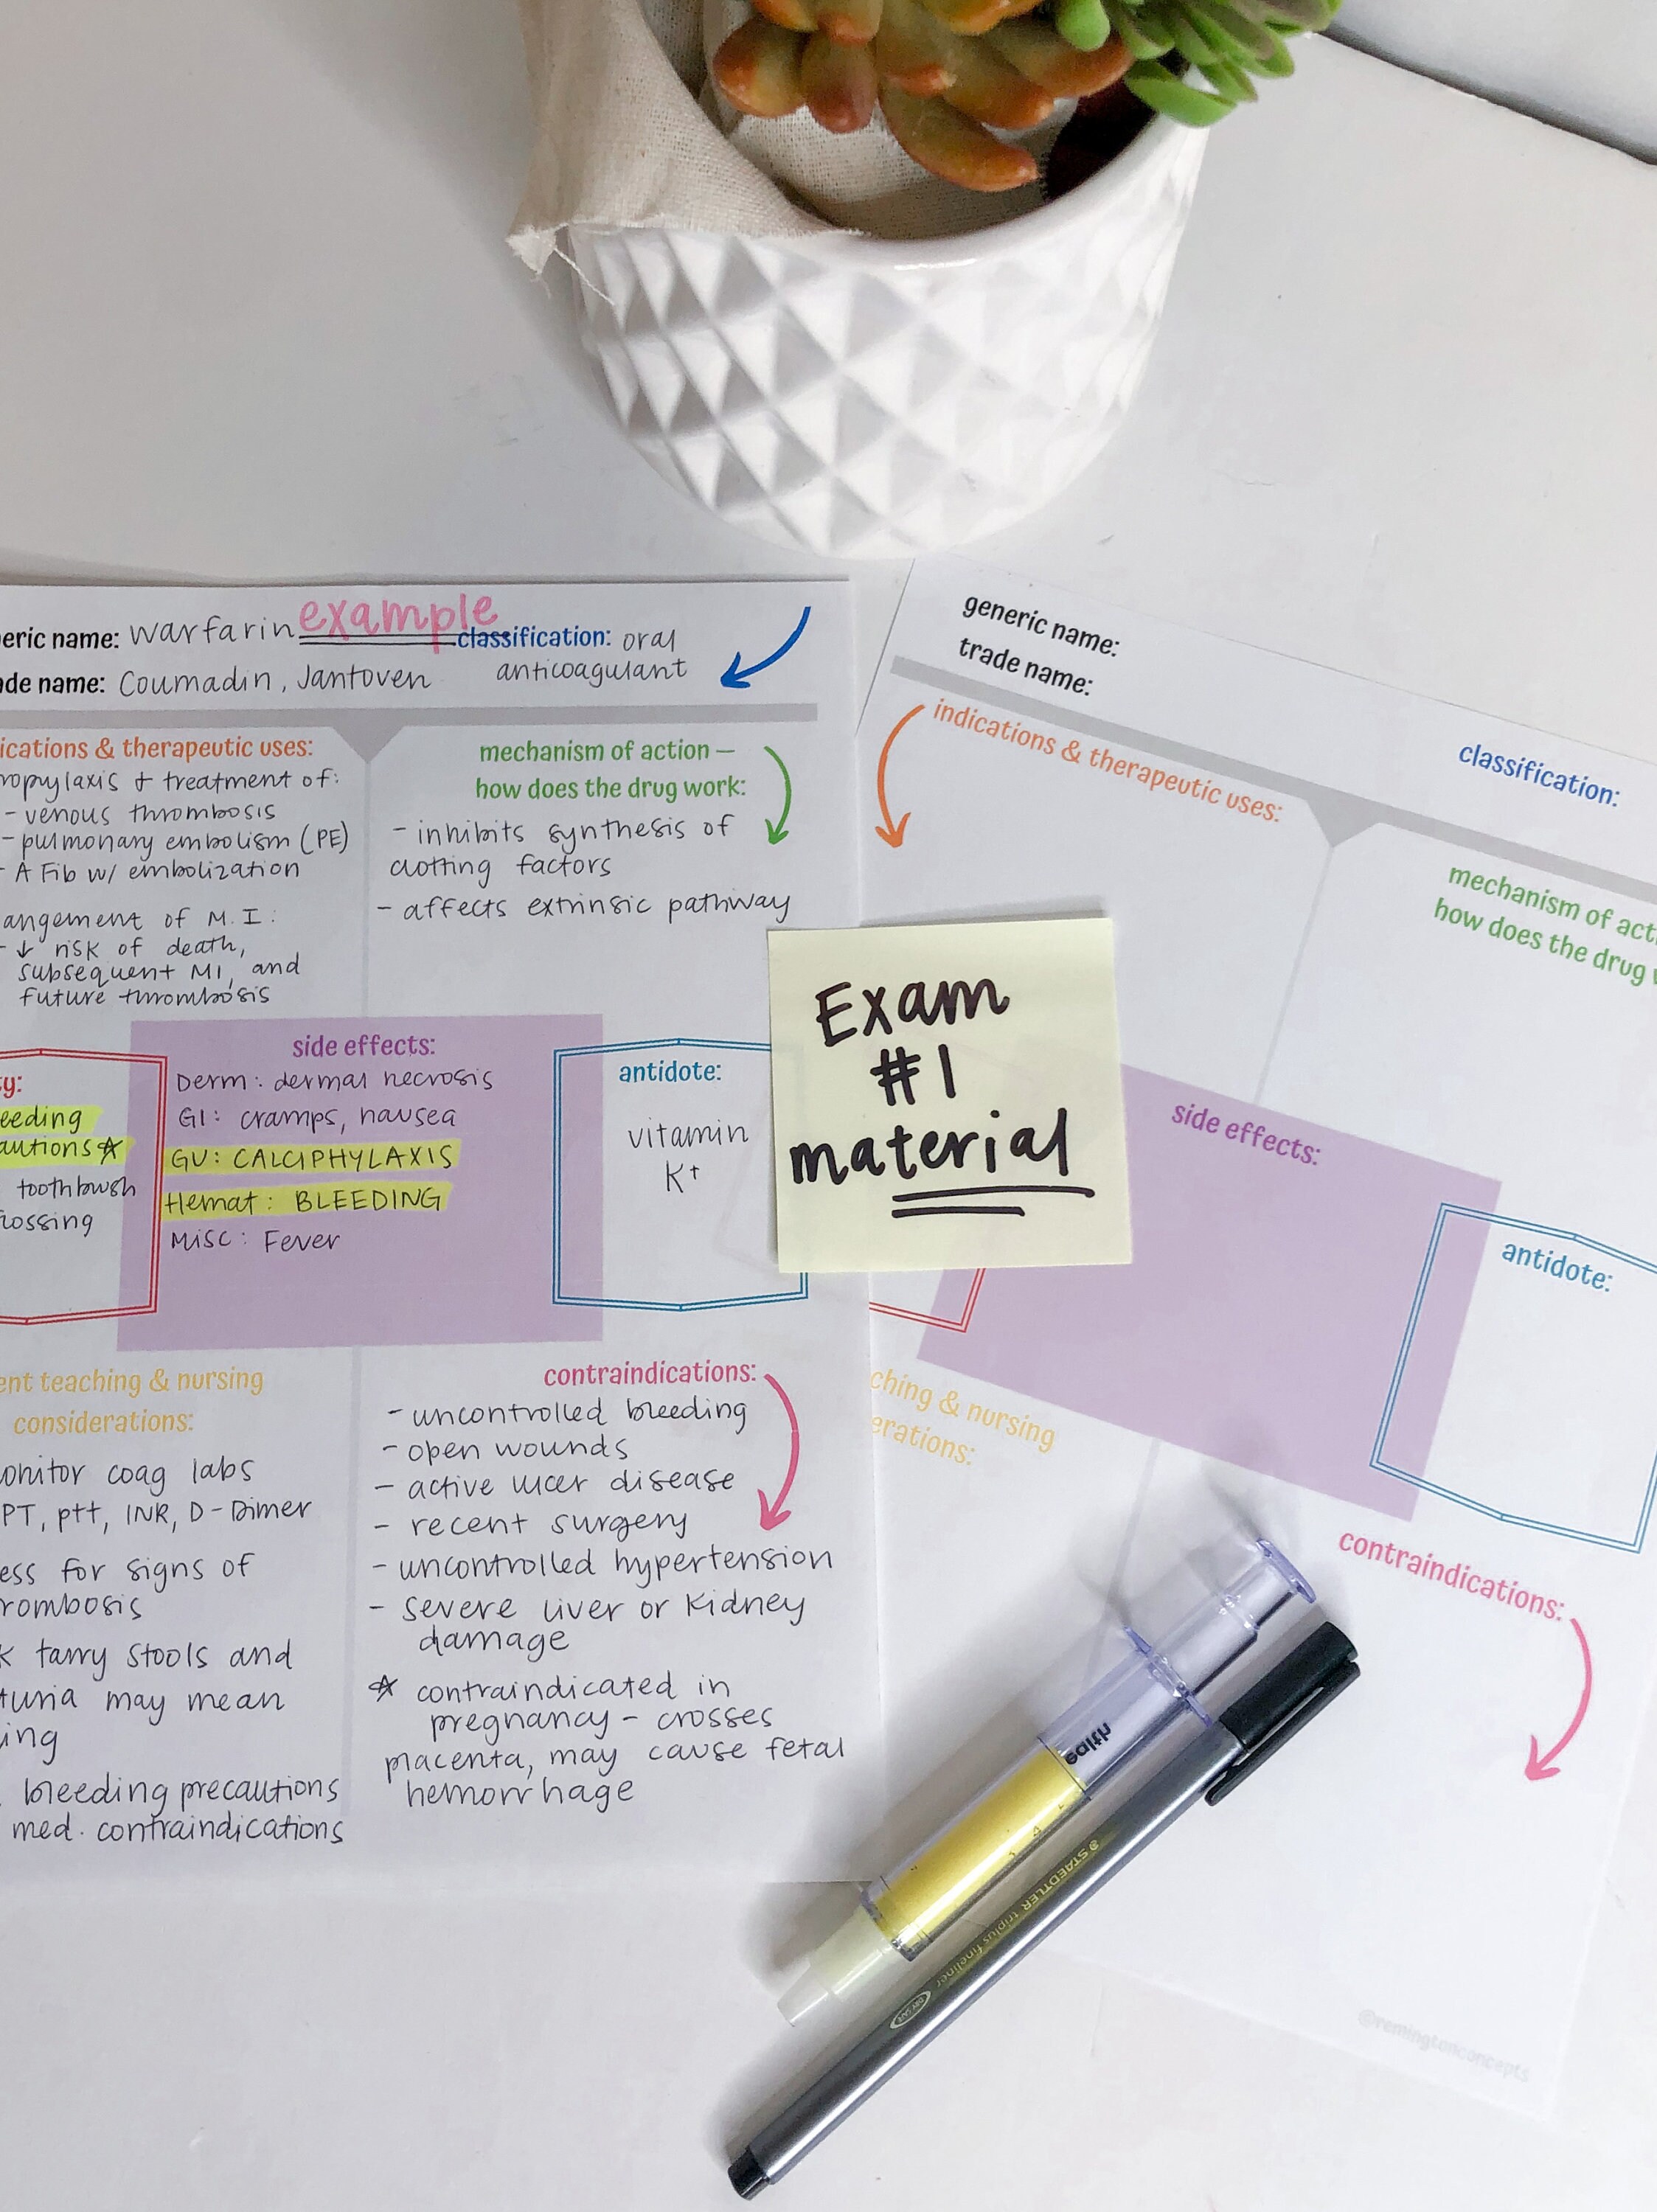 example
eric name: warfarin
classification: oral
anticoagulant
ade name: Coumadin, Jantoven
ications & therapeutic uses:
ropylaxis & treatment of:
- venous thrombosis
- pulmonary embolism (PE)
- A Fib w/ embolization
angement of M.I:
- ↓ risk of death,
subsequent MI, and
future thrombosis
mechanism of action –
how does the drug work:
- inhibits synthesis of
clotting factors
- affects extrinsic pathway
ty:
eeding
autions☆
toothbrush
lossing
side effects:
Derm: dermal necrosis
GI: cramps, nausea
GU: CALCIPHYLAXIS
Hemat: BLEEDING
Misc: Fever
antidote:
vitamin
K+
ent teaching & nursing
considerations:
onitor coag labs
PT, ptt, INR, D-Dimer
ess for signs of
rombosis
k tarry stools and
turia may mean
ing
bleeding precautions
med. contraindications
contraindications:
- uncontrolled bleeding
- open wounds
- active ulcer disease
- recent surgery
- uncontrolled hypertension
- severe liver or kidney
damage
☆ contraindicated in
pregnancy - crosses
placenta, may cause fetal
hemorrhage
Exam
#1
material
generic name:
trade name:
classification:
indications & therapeutic uses:
mechanism of acti
how does the drug w
side effects:
antidote:
ching & nursing
erations:
contraindications:
@remingtonconcepts
ealth
STAEDTLER triplus fineliner
DRY SAFE